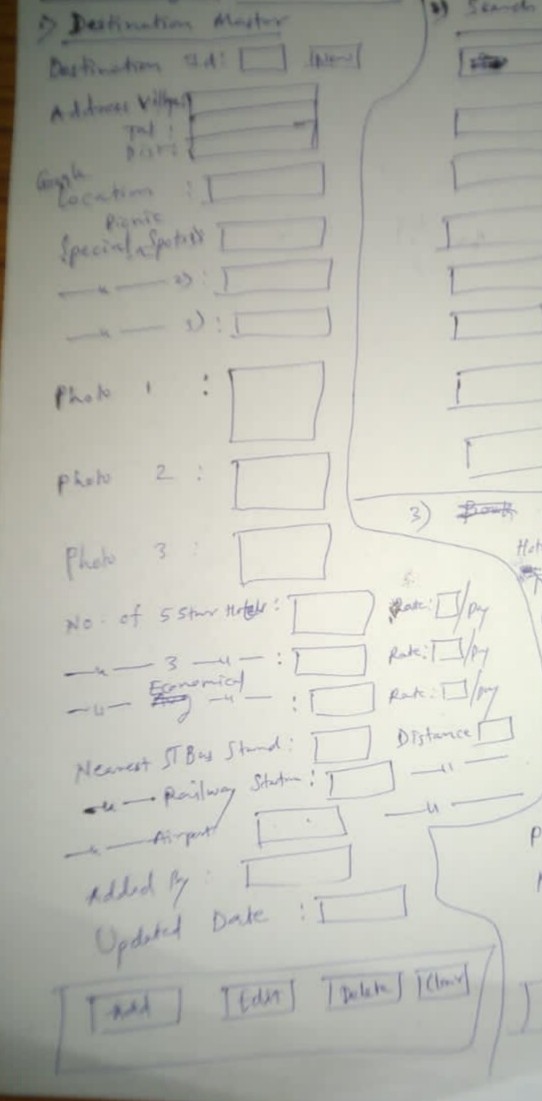 1) Destination Master
Destination Id: New
Address Village
Tal :
Dist:
Google
Location :
Picnic
Special Spots 1)
—〃— 2) :
—〃— 3) :
Photo 1 :
Photo 2 :
Photo 3 :
No. of 5 Star Hotels : Rate: /Day
—〃— 3 —〃— : Rate: /Day
Economical
—〃— —〃— : Rate: /Day
Nearest ST Bus Stand: Distance
—〃— Railway Station : —〃—
—〃— Airport —〃—
Added By :
Updated Date :
Add Edit Delete Clear
2) Search
3)